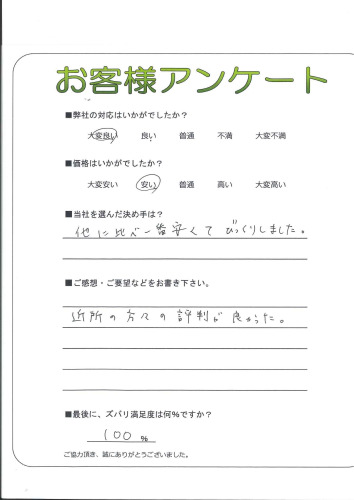 お客様アンケート
■弊社の対応はいかがでしたか?
大変良い 良い 普通 不満 大変不満
■価格はいかがでしたか?
大変安い 安い 普通 高い 大変高い
■当社を選んだ決め手は?
他に比べ一番安くてびっくりしました。
■ご感想・ご要望などをお書き下さい。
近所の方々の評判が良かった。
■最後に、ズバリ満足度は何%ですか?
100 %
ご協力頂き、誠にありがとうございました。